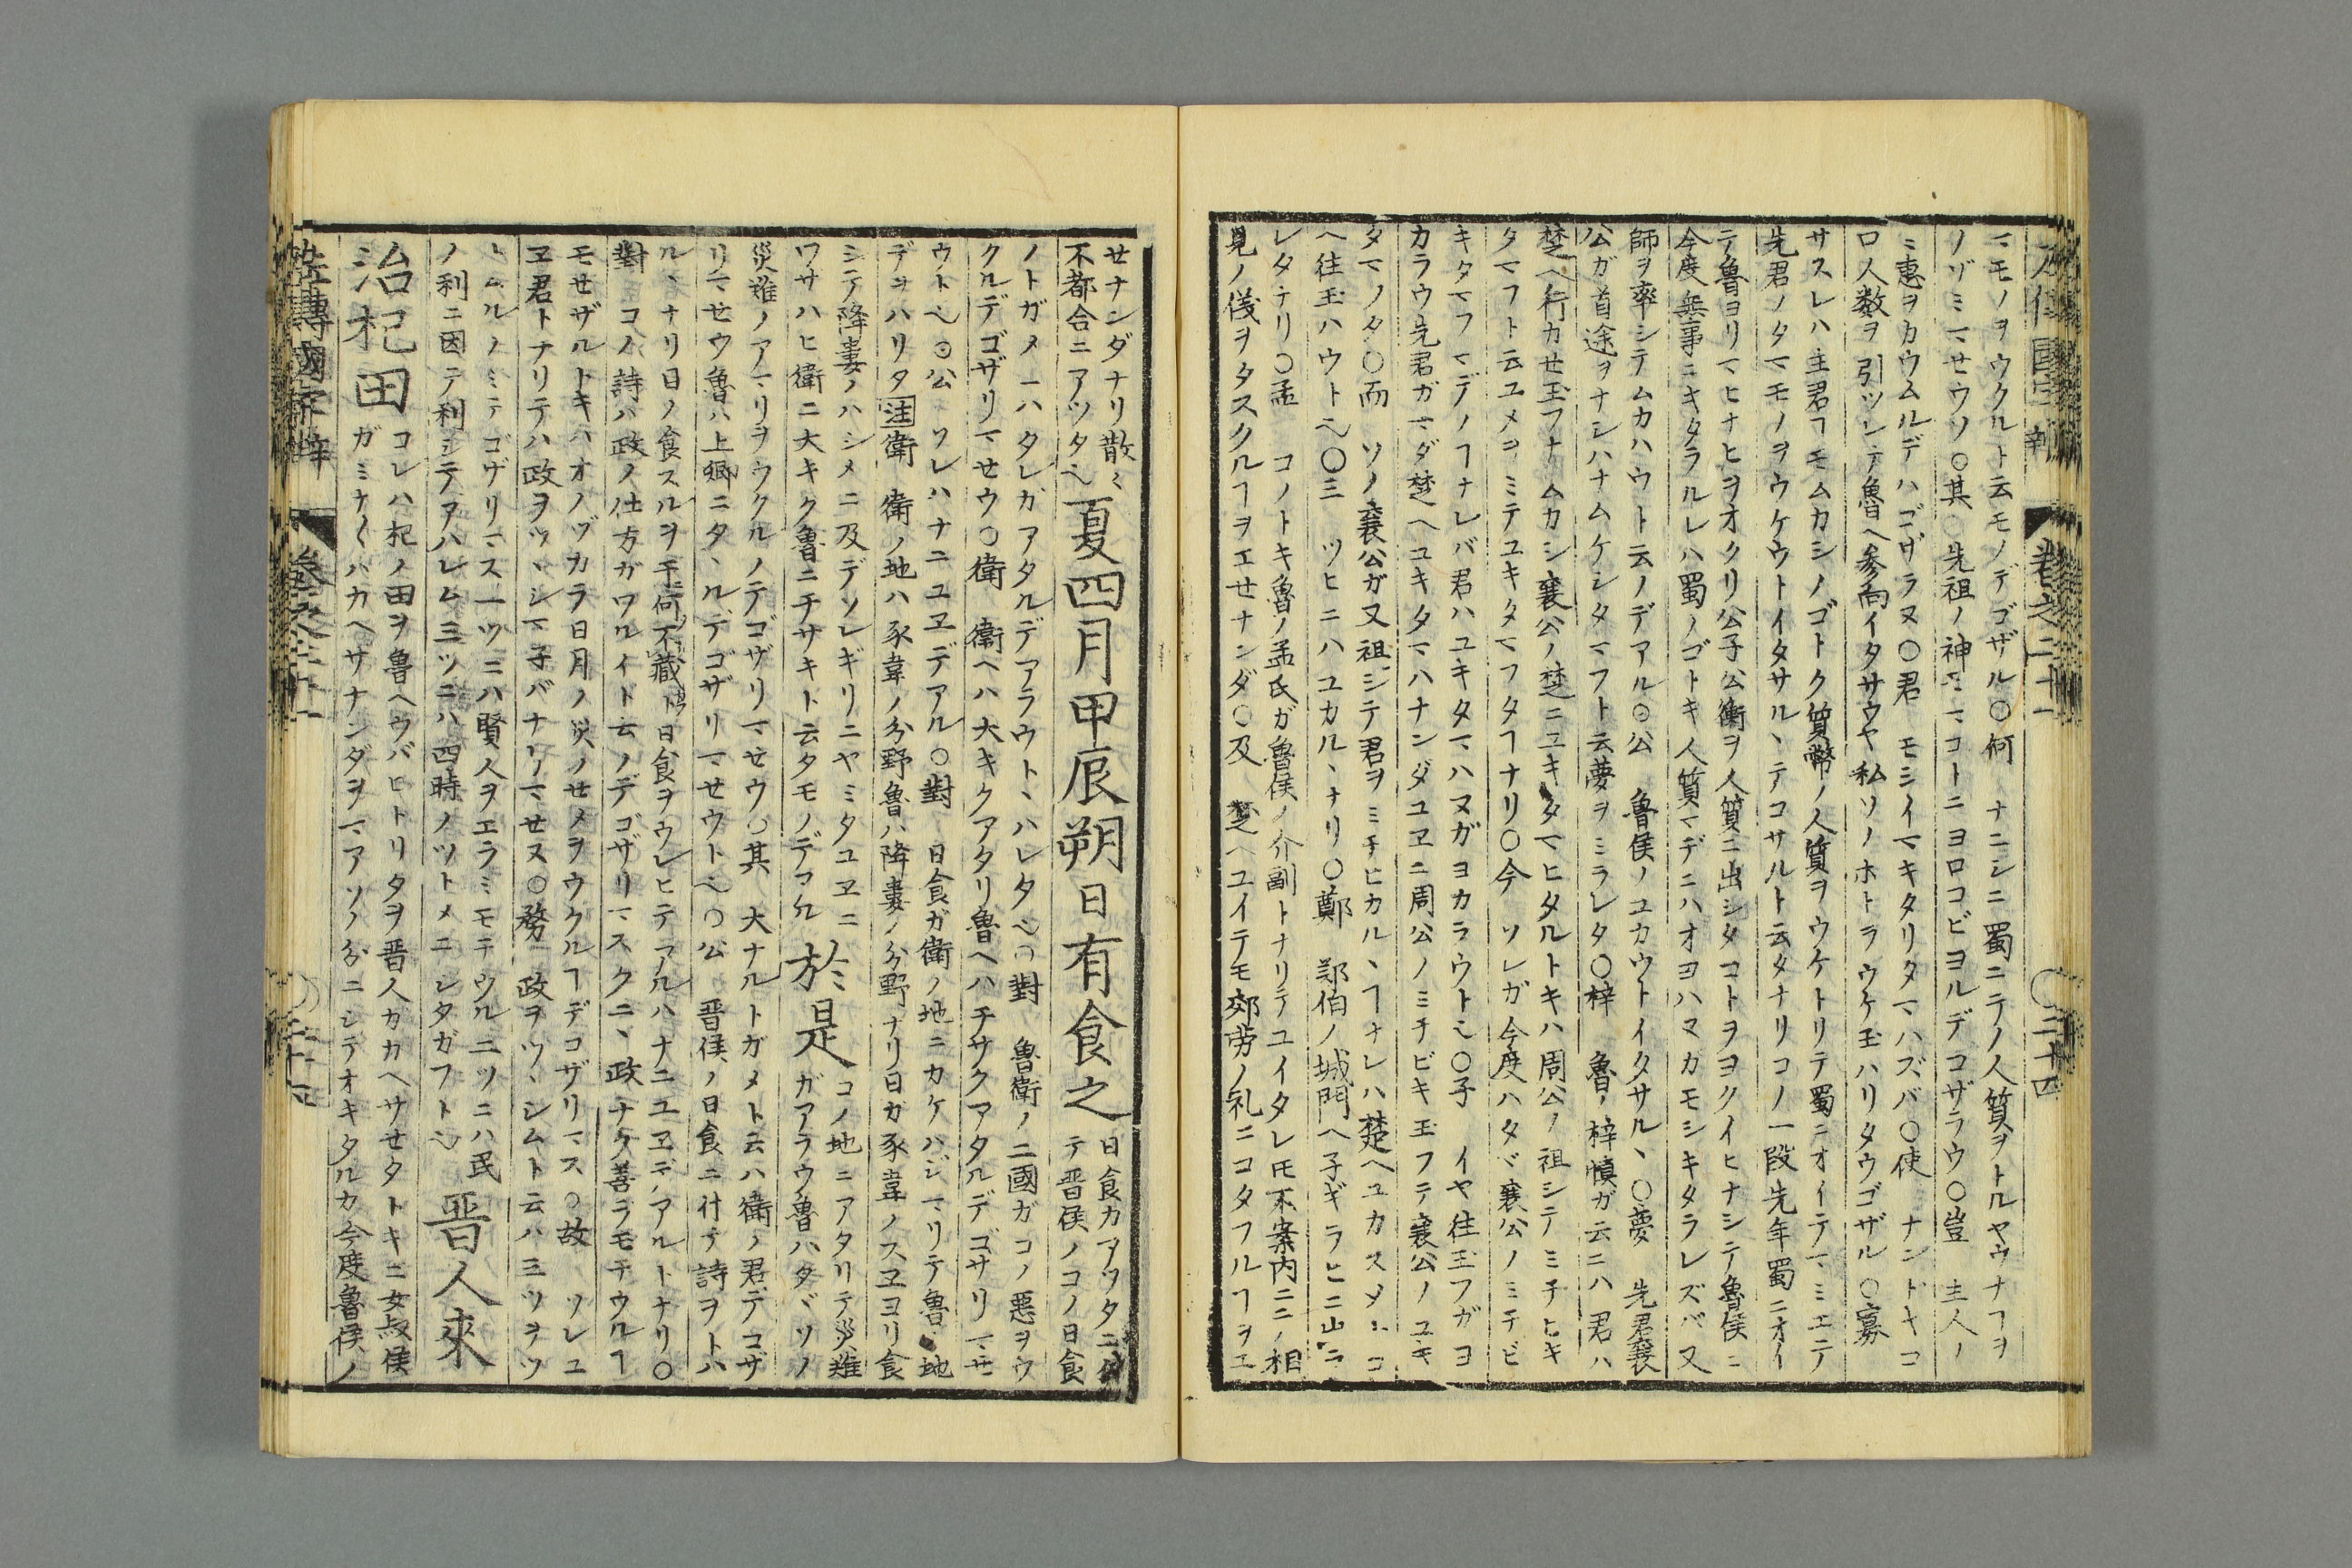 卷之二十一
二十四
マモノヲウクルト云モノデゴザル○何 ナニシニ蜀ニテノ人質ヲトルヤウナヿヲ
ノゾミマセウソ○其 先祖ノ神ミマコトニヨロコビヨルデコザラウ○豈 主人ノ
ミ恵ヲカウムルデハゴザラヌ○君 モシイマキタリタマハズバ○使 ナンドキコ
ロ人数ヲ引ツレテ魯ヘ参向イタサウヤ私ソノホトラウケ玉ハリタウゴザル○寡
サスレハ主君ヿモムカシノゴトク質幣ノ人質ヲウケトリテ蜀ニオイテマミエニテ
先君ノタマモノヲウケウトイタサル、テコサルト云タナリコノ一段先年蜀ニオイ
テ魯ヨリマヒナヒヲオクリ公子公衡ヲ人質ニ出シタコトヲヨクイヒナシテ魯侯ニ
今度無事ニキタラルレハ蜀ノゴトキ人質マデニハオヨハヌカモシキタラレズバ又
師ヲ率シテムカハウト云ノデアル○公 魯侯ノユカウトイタサル、○夢 先君襄
公ガ首途ヲナシハナムケシタマフト云夢ヲミラレタ○梓 魯ノ梓慎ガ云ニハ君ハ
楚ヘ行カセ玉フナムカシ襄公ノ楚ニユキタマヒタルトキハ周公ノ祖シテミチヒキ
タマフト云ユメヲミテユキタマフタヿナリ○今 ソレガ今度ハタヾ襄公ノミチビ
キタマフマデノヿナレバ君ハユキタマハヌガヨカラウト也○子 イヤ往玉フガヨ
カラウ先君ガマダ楚ヘユキタマハナンダユヱニ周公ノミチビキ玉フテ襄公ノユキ
タマノタ○而 ソノ襄公ガ又祖シテ君ヲミチヒカル、ヿナレハ楚ヘユカスメニコ
ヘ往玉ハウト也○三 ツヒニハユカル、ナリ○鄭 鄭伯ノ城門ヘ子ギラヒニ出ラ
レタナリ○孟 コノトキ魯ノ孟氏ガ魯侯ノ介副トナリテユイタレ𪜈不案内ニ〆相
見ノ儀ヲタスクルヿヲエセナンダ○及 楚ヘユイテモ郊労ノ礼ニコタフルヿヲエ
セナンダナリ散〻
不都合ニアツタ也
夏四月甲辰朔日有食之
日食カアツタニ
テ晋侯ノコノ日食
ノトガメーハタレガアタルデアラウト、ハレタ也○對 魯衛ノ二國ガコノ悪ヲウ
クルデゴザリマセウ○衛 衛ヘハ大キクアタリ魯ヘハチサクアタルデゴサリマセ
ウト也○公 ソレハナニユヱデアル○對 日食ガ衛ノ地ニカケハジマリテ魯ノ地
デヲハリタ注衛 衛ノ地ハ豕韋ノ分野魯ハ降婁ノ分野ナリ日カ豕韋ノスヱヨリ食
シテ降婁ノハシメニ及デソレギリニヤミタユヱニ
ワサハヒ衛ニ大キク魯ニチサキト云タモノデアル
於是
コノ地ニアタリテ災難
ガアラウ魯ハタヾソノ
災難ノアマリヲウクルノテゴザリマセウ○其 大ナルトガメト云ハ衛ノ君デコザ
リマセウ魯ハ上卿ニタ、ルデゴザリマセウト也○公 晋侯ノ日食ニ付テ詩ヲトハ
ル、ナリ日ノ食スルヲ于何不臧ト日食ヲウレヒテアルハナニユヱデアルトナリ○
對 コノ詩ハ政ノ仕方ガワルイト云ノデゴザリマスクニ、政ナク善ヲモチウルヿ
モセザルトキハオノヅカラ日月ノ災ノせメヲウクルヿデコザリマス○故 ソレユ
ヱ君トナリテハ政ヲツ、シマ子バナリマセヌ○務 政ヲツ、シムト云ハ三ツヲツ
トムルノミテゴザリマス一ツニハ賢人ヲエラミモチウル二ツニハ民
ノ利ニ因テ利シテアハレム三ツニハ四時ノツトメニシタガフト也
晋人來
治杞田
コレハ杞ノ田ヲ魯ヘウバヒトリタヲ晋人カカヘサセタトキニ女叔侯
ガミナ〱ハカヘサナンダヲマアソノ分ニシテオキタルカ今度魯侯ノ
左傳國字辯
卷之二十一